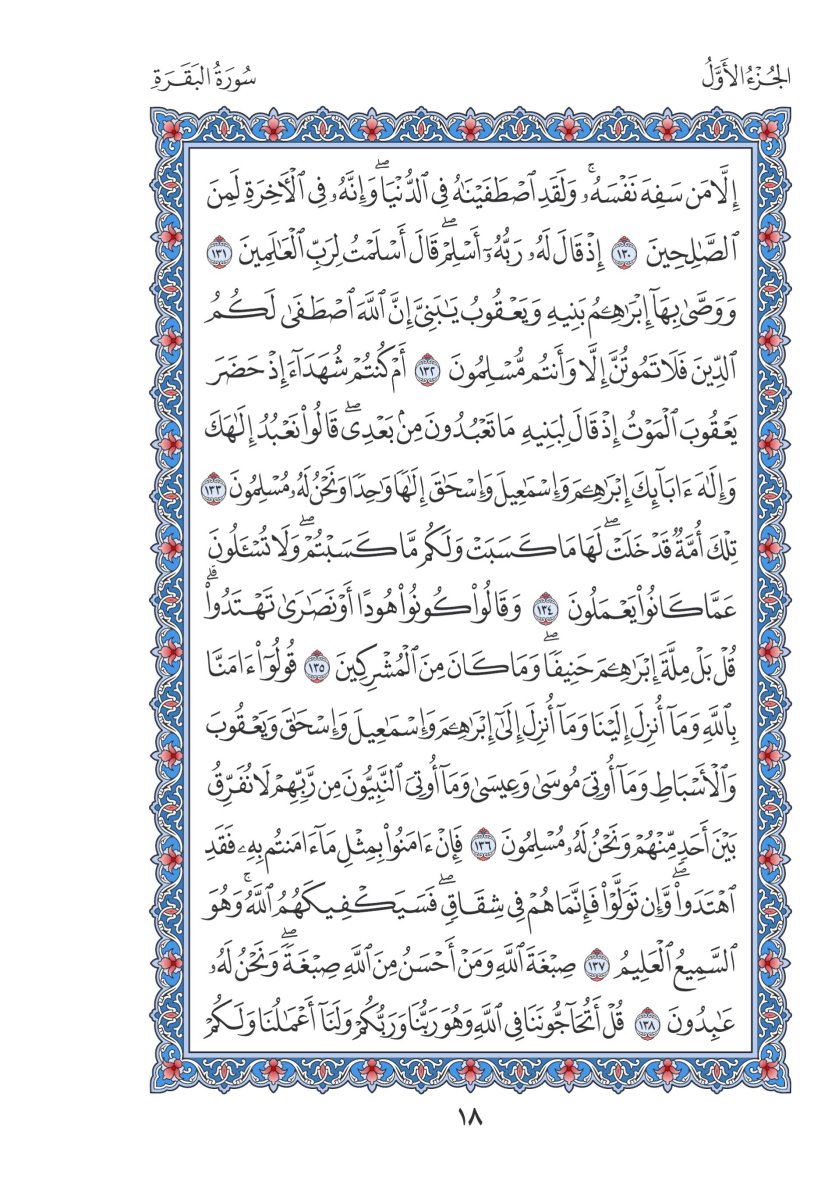 الجُزْءُ الأَوَّلُ
سُورَةُ البَقَرَةِ
إِلَّا مَن سَفِهَ نَفْسَهُۥۚ وَلَقَدِ ٱصْطَفَيْنَٰهُ فِي ٱلدُّنْيَاۖ وَإِنَّهُۥ فِي ٱلْأٓخِرَةِ لَمِنَ
ٱلصَّٰلِحِينَ ١٣٠ إِذْ قَالَ لَهُۥ رَبُّهُۥٓ أَسْلِمْۖ قَالَ أَسْلَمْتُ لِرَبِّ ٱلْعَٰلَمِينَ ١٣١
وَوَصَّىٰ بِهَآ إِبْرَٰهِـۧمُ بَنِيهِ وَيَعْقُوبُ يَٰبَنِيَّ إِنَّ ٱللَّهَ ٱصْطَفَىٰ لَكُمُ
ٱلدِّينَ فَلَا تَمُوتُنَّ إِلَّا وَأَنتُم مُّسْلِمُونَ ١٣٢ أَمْ كُنتُمْ شُهَدَآءَ إِذْ حَضَرَ
يَعْقُوبَ ٱلْمَوْتُ إِذْ قَالَ لِبَنِيهِ مَا تَعْبُدُونَ مِنۢ بَعْدِيۖ قَالُوا۟ نَعْبُدُ إِلَٰهَكَ
وَإِلَٰهَ ءَابَآئِكَ إِبْرَٰهِـۧمَ وَإِسْمَٰعِيلَ وَإِسْحَٰقَ إِلَٰهًا وَٰحِدًا وَنَحْنُ لَهُۥ مُسْلِمُونَ ١٣٣
تِلْكَ أُمَّةٌ قَدْ خَلَتْۖ لَهَا مَا كَسَبَتْ وَلَكُم مَّا كَسَبْتُمْۖ وَلَا تُسْـَٔلُونَ
عَمَّا كَانُوا۟ يَعْمَلُونَ ١٣٤ وَقَالُوا۟ كُونُوا۟ هُودًا أَوْ نَصَٰرَىٰ تَهْتَدُوا۟ۗ
قُلْ بَلْ مِلَّةَ إِبْرَٰهِـۧمَ حَنِيفًاۖ وَمَا كَانَ مِنَ ٱلْمُشْرِكِينَ ١٣٥ قُولُوٓا۟ ءَامَنَّا
بِٱللَّهِ وَمَآ أُنزِلَ إِلَيْنَا وَمَآ أُنزِلَ إِلَىٰٓ إِبْرَٰهِـۧمَ وَإِسْمَٰعِيلَ وَإِسْحَٰقَ وَيَعْقُوبَ
وَٱلْأَسْبَاطِ وَمَآ أُوتِيَ مُوسَىٰ وَعِيسَىٰ وَمَآ أُوتِيَ ٱلنَّبِيُّونَ مِن رَّبِّهِمْ لَا نُفَرِّقُ
بَيْنَ أَحَدٍ مِّنْهُمْ وَنَحْنُ لَهُۥ مُسْلِمُونَ ١٣٦ فَإِنْ ءَامَنُوا۟ بِمِثْلِ مَآ ءَامَنتُم بِهِۦ فَقَدِ
ٱهْتَدَوا۟ۖ وَّإِن تَوَلَّوْا۟ فَإِنَّمَا هُمْ فِي شِقَاقٍۖ فَسَيَكْفِيكَهُمُ ٱللَّهُۚ وَهُوَ
ٱلسَّمِيعُ ٱلْعَلِيمُ ١٣٧ صِبْغَةَ ٱللَّهِ وَمَنْ أَحْسَنُ مِنَ ٱللَّهِ صِبْغَةًۖ وَنَحْنُ لَهُۥ
عَٰبِدُونَ ١٣٨ قُلْ أَتُحَآجُّونَنَا فِي ٱللَّهِ وَهُوَ رَبُّنَا وَرَبُّكُمْ وَلَنَآ أَعْمَٰلُنَا وَلَكُمْ
١٨